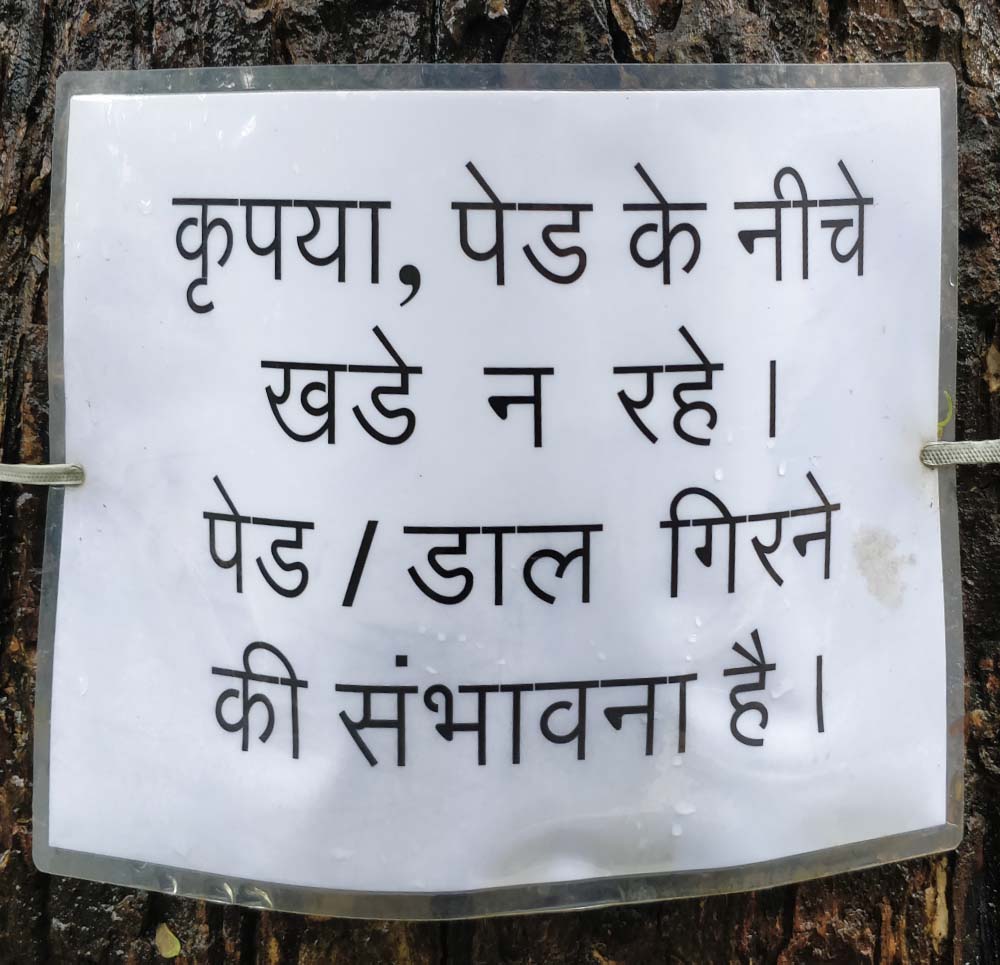 कृपया, पेड के नीचे
खडे न रहे ।
पेड / डाल गिरने
की संभावना है ।